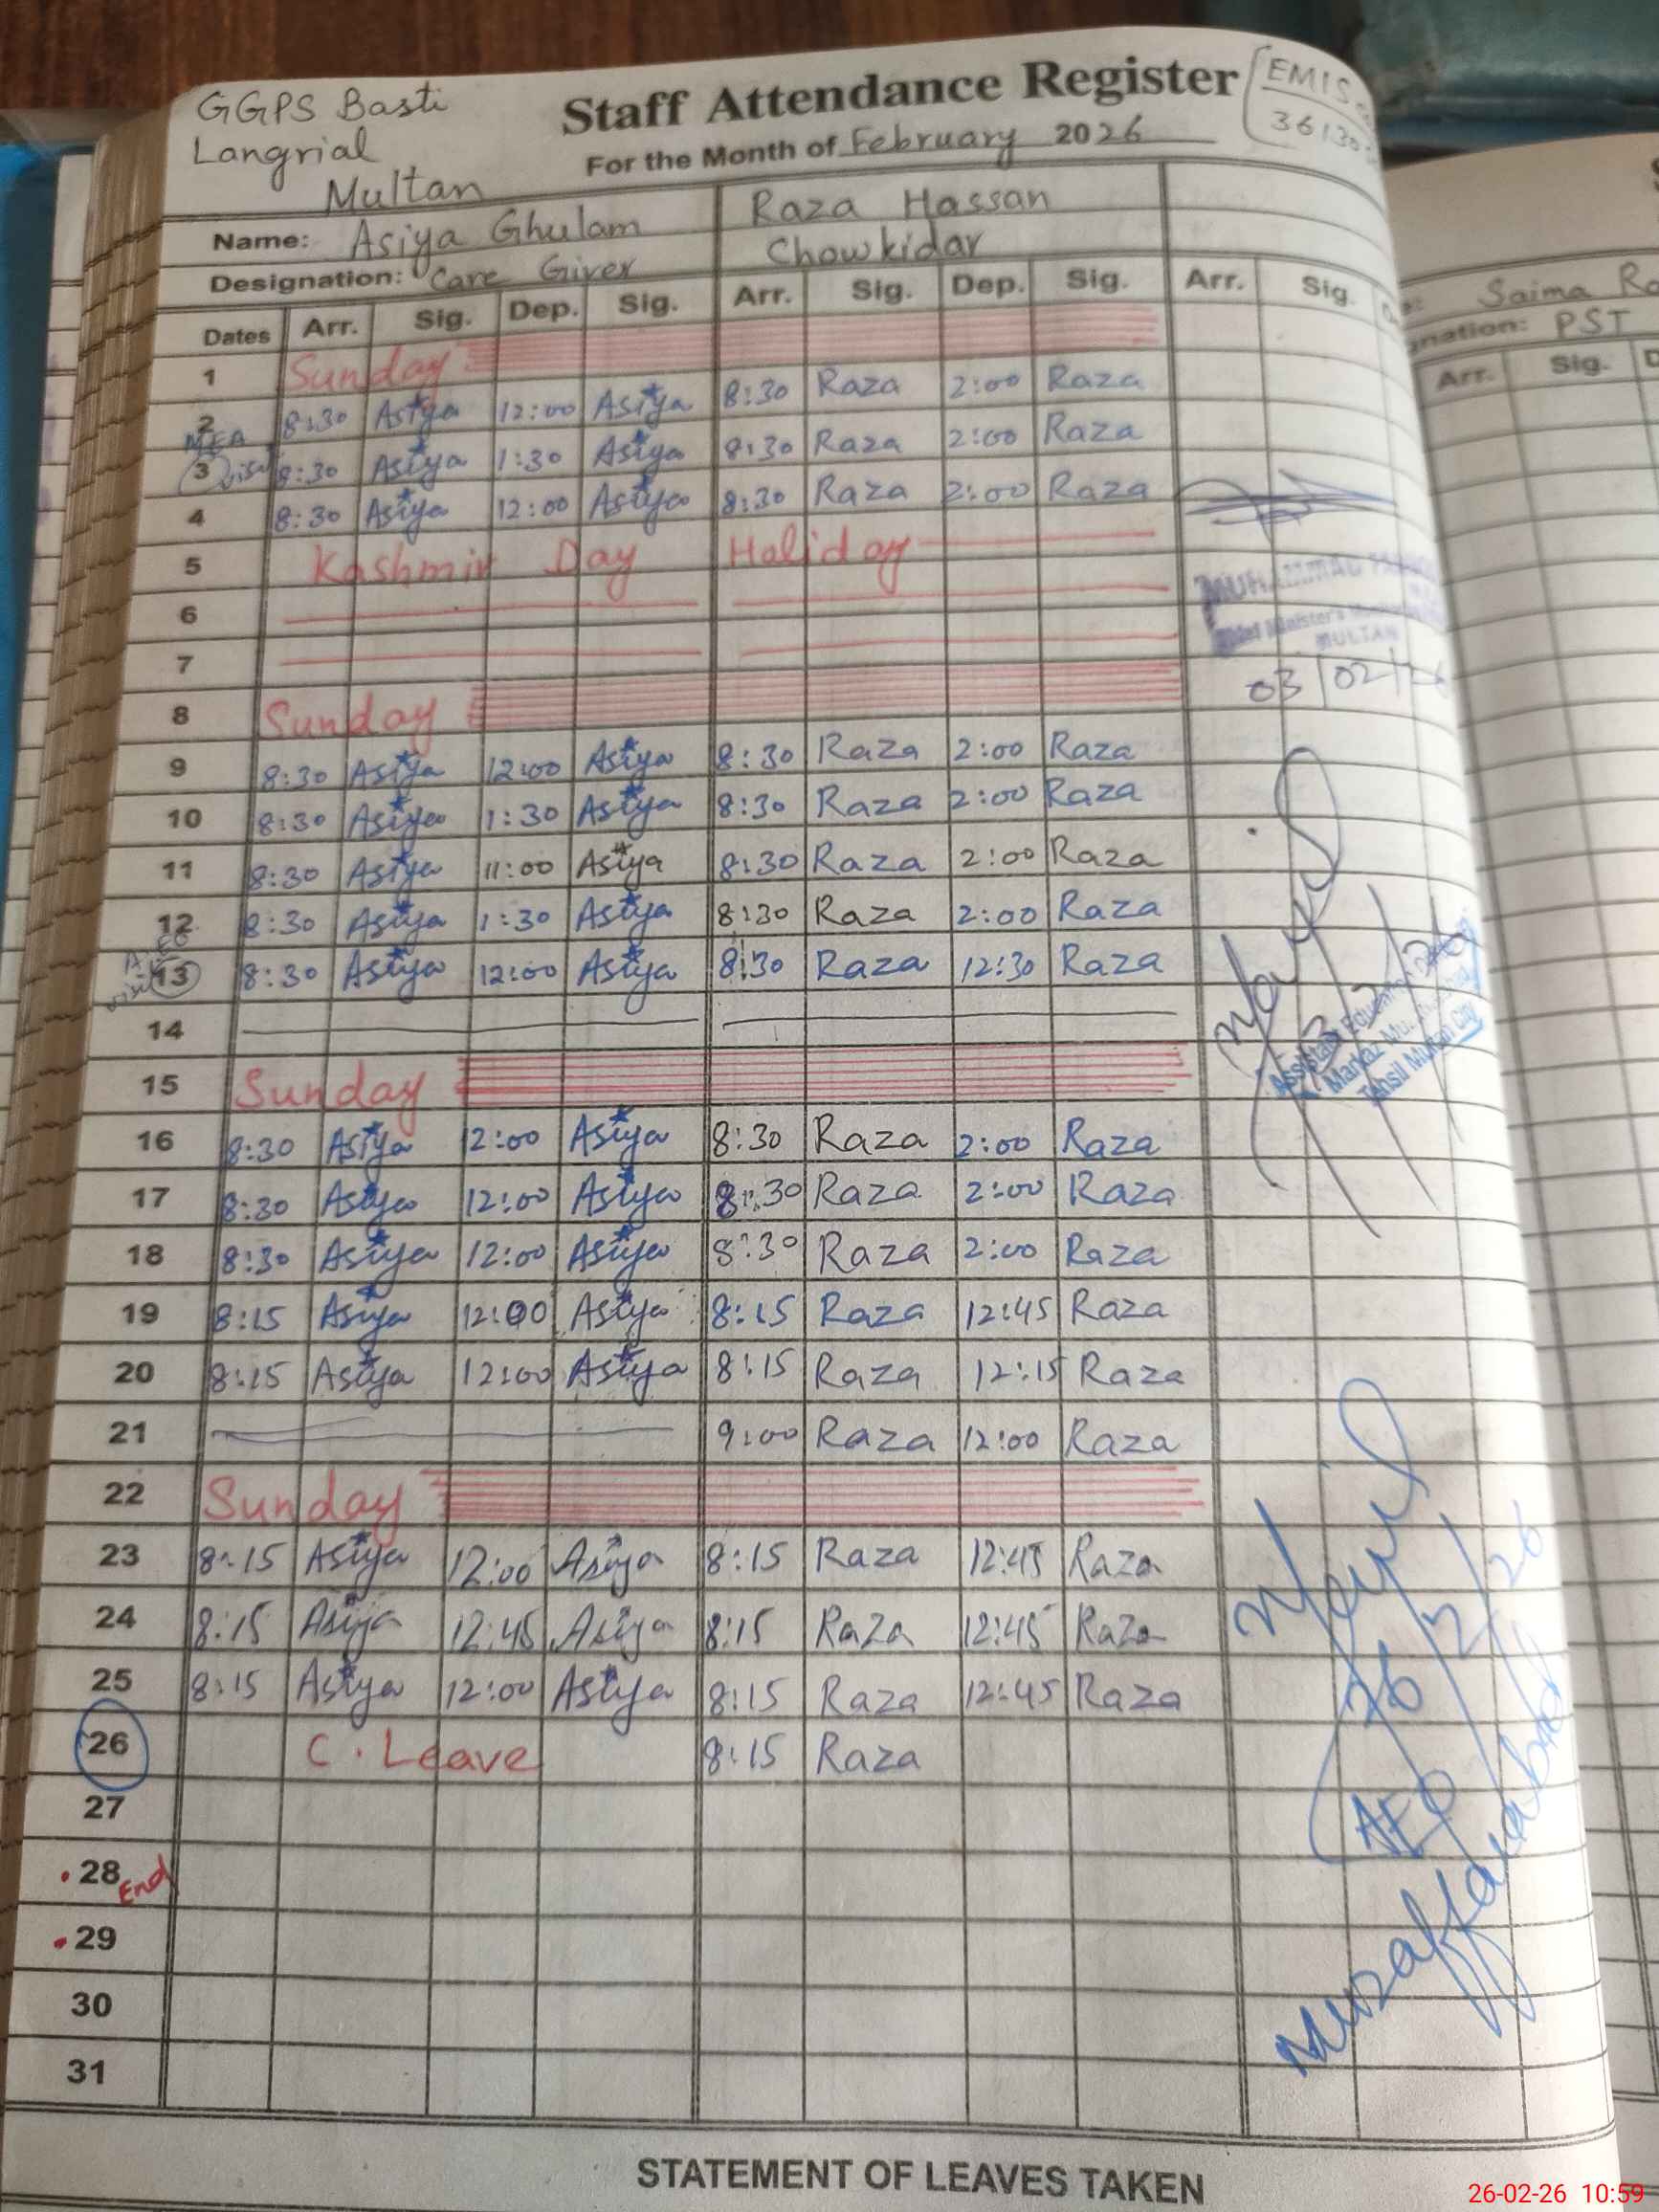 GGPS Basti
Langrial
Multan
Staff Attendance Register
For the Month of February 2026
EMIS
Name: Asiya Ghulam Raza Hassan
Designation: Care Giver Chowkidar
Dates Arr. Sig. Dep. Sig. Arr. Sig. Dep. Sig. Arr. Sig.
1 Sunday
2 8:30 Asiya 12:00 Asiya 8:30 Raza 2:00 Raza
MEA visit
3 8:30 Asiya 1:30 Asiya 8:30 Raza 2:00 Raza
4 8:30 Asiya 12:00 Asiya 8:30 Raza 2:00 Raza
5 Kashmir Day Haliday
6
7
MUHAMMAD
MULTAN
03/02/26
8 Sunday
9 8:30 Asiya 12:00 Asiya 8:30 Raza 2:00 Raza
10 8:30 Asiya 1:30 Asiya 8:30 Raza 2:00 Raza
11 8:30 Asiya 11:00 Asiya 8:30 Raza 2:00 Raza
12 8:30 Asiya 1:30 Asiya 8:30 Raza 2:00 Raza
AEO visit
13 8:30 Asiya 12:00 Asiya 8:30 Raza 12:30 Raza
14
Assistant Education
Markaz
Tehsil Multan City
15 Sunday
16 8:30 Asiya 12:00 Asiya 8:30 Raza 2:00 Raza
17 8:30 Asiya 12:00 Asiya 8:30 Raza 2:00 Raza
18 8:30 Asiya 12:00 Asiya 8:30 Raza 2:00 Raza
19 8:15 Asiya 12:00 Asiya 8:15 Raza 12:45 Raza
20 8:15 Asiya 12:00 Asiya 8:15 Raza 12:15 Raza
21 9:00 Raza 12:00 Raza
22 Sunday
23 8:15 Asiya 12:00 Asiya 8:15 Raza 12:45 Raza
24 8:15 Asiya 12:45 Asiya 8:15 Raza 12:45 Raza
25 8:15 Asiya 12:00 Asiya 8:15 Raza 12:45 Raza
26 C. Leave 8:15 Raza
26/2/26
AEO
Muzaffarabad
27
28 End
29
30
31
STATEMENT OF LEAVES TAKEN
Saima
PST
Arr. Sig.
26-02-26 10:59